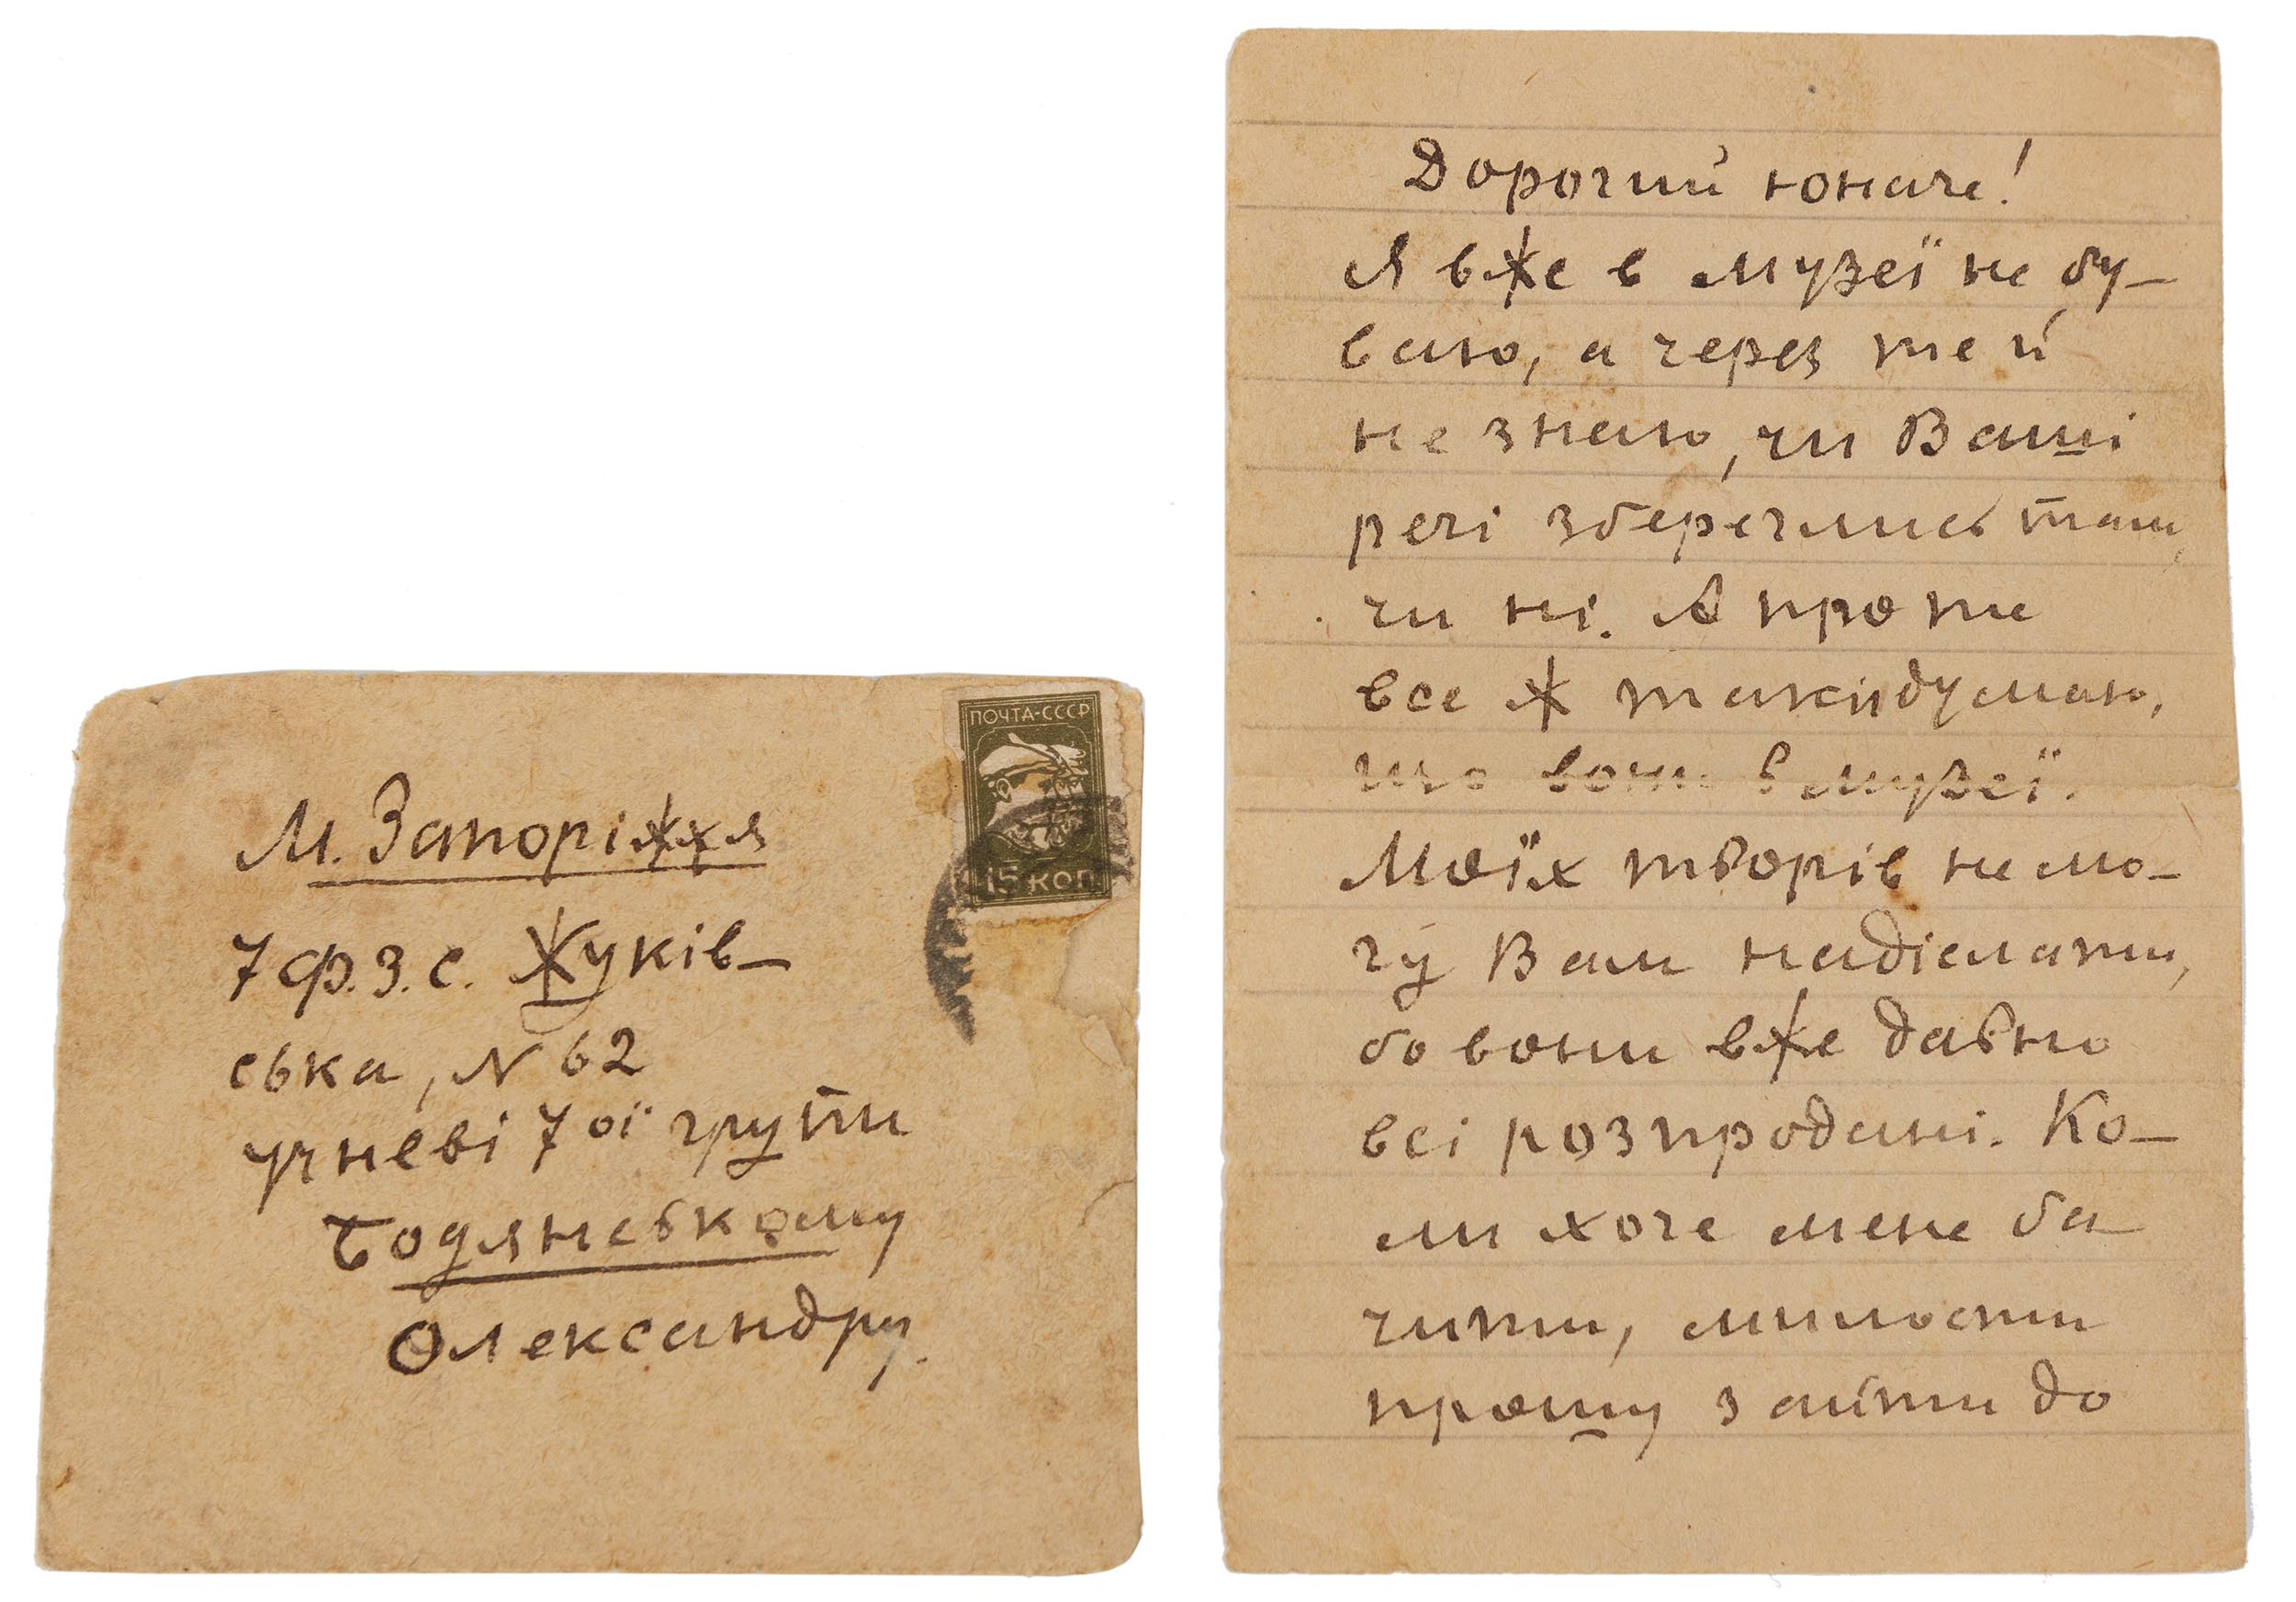 ПОЧТА-СССР
15 КОП.
М. Запоріжжя
7 Ф.З.С. Жуків-
ська, № 62
учневі 7ої групи
Бодянському
Олександру.
Дорогий юначе!
Я вже в музеї не бу-
ваю, а через те й
не знаю, чи Ваші
речі збереглись там,
чи ні. А проте
все ж таки думаю,
що вони в музеї.
Моїх творів не мо-
гу Вам надіслати,
бо вони вже давно
всі розпродані. Ко-
ли хоче мене ба
чити, милости
прошу зайти до